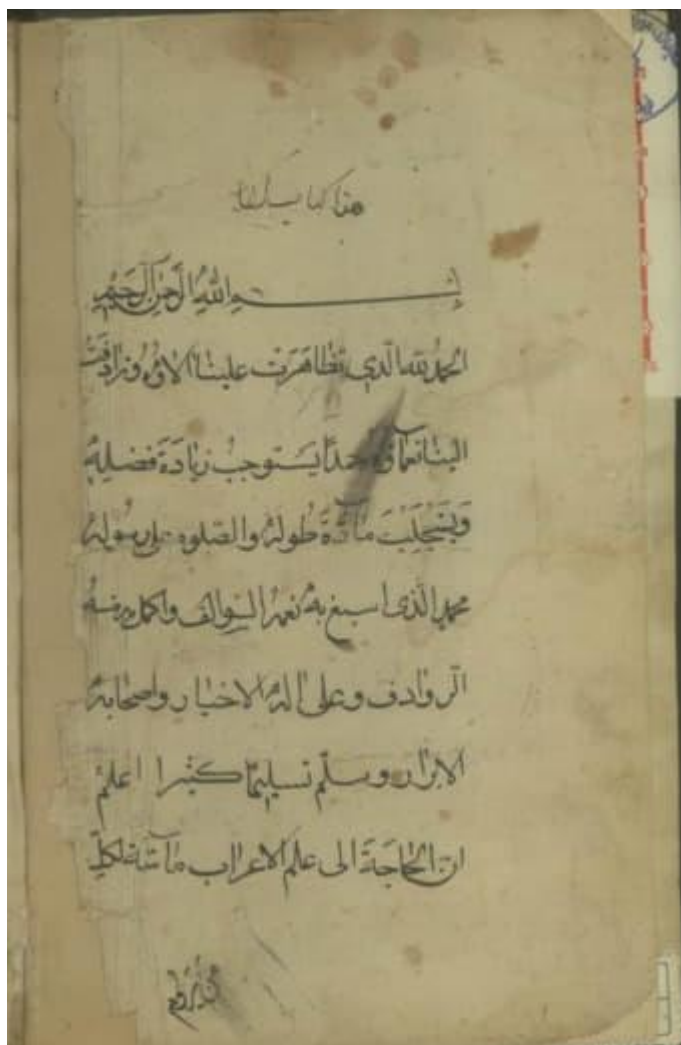 هذا كتاب
بسم الله الرحمن الرحيم
الحمد لله الذي تظاهرت علينا الاؤه وترادفت
الينا نعماؤه حمدا يستوجب زيادة فضله
ويستجلب مادة طوله والصلوه على رسوله
محمد الذى اسبغ به نعمه السوالف واكمل مننه
الروادف وعلى اله الاخيار واصحابه
الابرار وسلم تسليما كثيرا اعلم
ان الحاجة الى علم الاعراب ماسة لكل